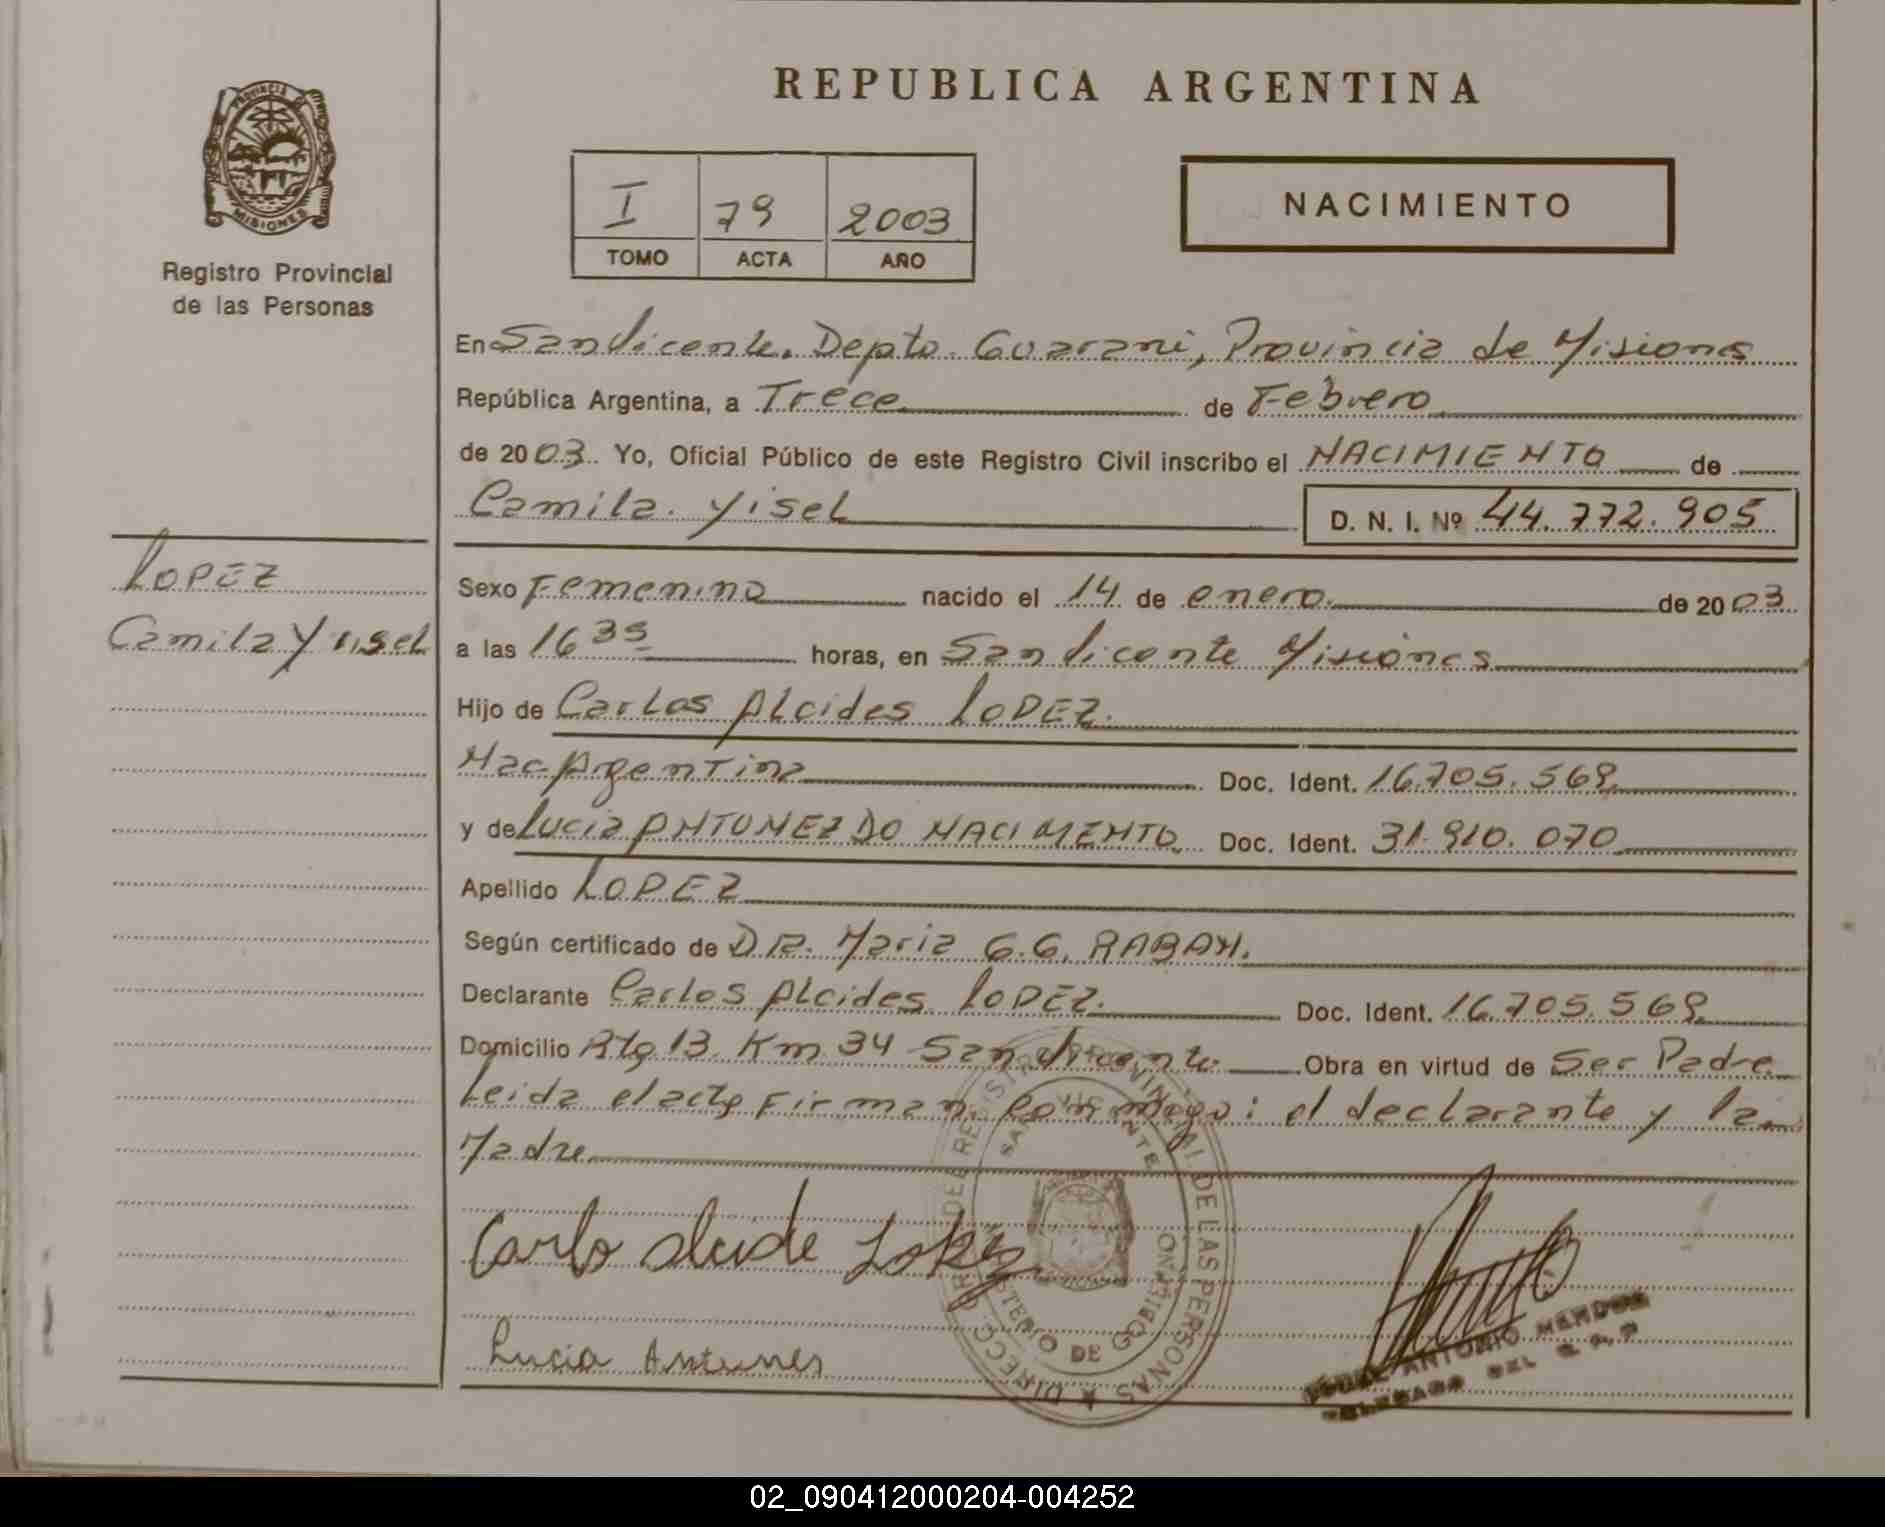 REPUBLICA ARGENTINA
PROVINCIA DE
MISIONES
Registro Provincial
de las Personas
I 79 2003
TOMO ACTA AÑO
NACIMIENTO
En San Vicente. Depto. Guarani, Provincia de Misiones
República Argentina, a Trece de Febrero
de 2003. Yo, Oficial Público de este Registro Civil inscribo el NACIMIENTO de
Camila. Yisel D. N. I. Nº 44.772.905
LOPEZ
Camila Yisel
Sexo Femenino nacido el 14 de enero. de 2003
a las 16 35 horas, en San Vicente Misiones
Hijo de Carlos Alcides LOPEZ.
Nac Argentina Doc. Ident. 16.705.569.
y de Lucia ANTUNEZ DO NACIMENTO. Doc. Ident. 31.910.070
Apellido LOPEZ
Según certificado de DRA. Maria G.G. RABAN.
Declarante Carlos Alcides LOPEZ. Doc. Ident. 16.705.569.
Domicilio Rta 13 Km 34 San Vicente Obra en virtud de Ser Padre
Leida el acta Firman conmigo: el declarante y la
Madre
Carlo alcide Lopez
Lucia Antunes
DIRECC. GRAL. DEL REGISTRO PROVINCIAL DE LAS PERSONAS
SAN VICENTE
MINISTERIO DE GOBIERNO
ANTONIO
DELEGADO DEL R. P. P
02_090412000204-004252